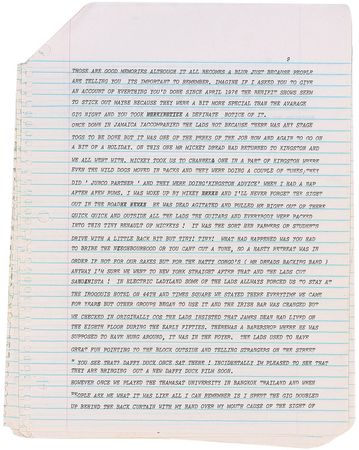 9
THOSE ARE GOOD MEMORIES ALTHOUGH IT ALL BECOMES A BLUR JUST BECAUSE PEOPLE
ARE TELLING YOU ITS IMPORTANT TO REMEMBER, IMAGINE IF I ASKED YOU TO GIVE
AN ACCOUNT OF EVERTHING YOU'D DONE SINCE APRIL 1976 THE BENIFIT SHOWS SEEM
TO STICK OUT MAYBE BECAUSE THEY WERE A BIT MORE SPECIAL THAN THE AVARAGE
GIG NIGHT AND YOU TOOK A DEFINATE NOTICE OF IT.
ONCE DOWN IN JAMAICA I'ACCOMPANIED THE LADS NOT BECAUSE THERE WAS ANY STAGE
TOGS TO BE DONE BUT IT WAS ONE OF THE PERKS OF THE JOB NOW AND AGAIN TO GO ON
A BIT OF A HOLIDAY. ON THIS ONE MR MIKEY DREAD HAD RETURNED TO KINGSTON AND
WE ALL WENT WITH. MICKEY TOOK US TO CHANNELA ONE IN A PART OF KINGSTON WHERE
EVEN THE WILD DOGS MOVED IN PACKS AND THEY WERE DOING A COUPLE OF TUNES;THEY
DID ' JUNCO PARTNER ' AND THEY WERE DOING'KINGSTON ADVICE' WHEN I HAD A NAP
AFTER A FEW RUMS. I WAS WOKE UP BY MIKEY AND I'LL NEVER FORGET THE SIGHT
OUT IN THE ROAD HE WAS DEAD AGITATED AND PULLED ME RIGHT OUT OF THERE
QUICK QUICK AND OUTSIDE ALL THE LADS THE GUITARS AND EVERYBODY WERE PACKED
INTO THIS TINY RENAULT OF MICKEYS ! IT WAS THE SORT HER FARMERS OR STUDENTS
DRIVE WITH A LITTLE BACK BIT BUT TINY! TINY! WHAT HAD HAPPENED WAS YOU HAD
TO BRIBE THE NEIGHBOURHOOD OR YOU CANT CUT A TUNE, SO A HASTY RETREAT WAS IN
ORDER IF NOT FOR OUR SAKES BUT FOR THE NATTY CONGO'S ( MR DREADS BACKING BAND )
ANYWAY I'M SURE WE WENT TO NEW YORK STRAIGHT AFTER THAT AND THE LADS CUT
SANDINISTA ! IN ELECTRIC LADYLAND SOME OF THE LADS ALLWAYS FORCED US TO STAY AT
THE IROQUOIS HOTEL ON 44TH AND TIMES SQUARE WE STAYED THERE EVERYTIME WE CAME
FOR YEARS BUT OTHER GROUPS BEGAN TO USE IT AND THE IRISH BAR WAS CHANGED BUT
WE CHECKED IN ORIGINALLY COS THE LADS INSISTED THAT JAMES DEAN HAD LIVED ON
THE EIGHTH FLOOR DURING THE EARLY FIFTIES. THEREWAS A BARBERSHOP WHERE HE WAS
SUPPOSED TO HAVE HUNG AROUND, IT WAS IN THE FOYER. THE LADS USED TO HAVE
GREAT FUN POINTING TO THE BLOCK OUTSIDE AND TELLING STRANGERS ON THE STREET
" YOU SEE THAT? DAFFY DUCK ONCE SAT THERE ! INCIDENTALLY IM PLEASED TO SEE THAT
THEY ARE BRINGING OUT A NEW DAFFY DUCK FILM SOON.
HOWEVER ONCE WE PLAYED THE THAMASAT UNIVERSITY IN BANGKOK THAILAND AND WHEN
PEOPLE ASK ME WHAT IT WAS LIKE ALL I CAN REMEMBER IS I SPENT THE GIG DOUBLED
UP BEHIND THE BACK CURTAIN WITH MY HAND OVER MY MOUTH CAUSE OF THE SIGHT OF